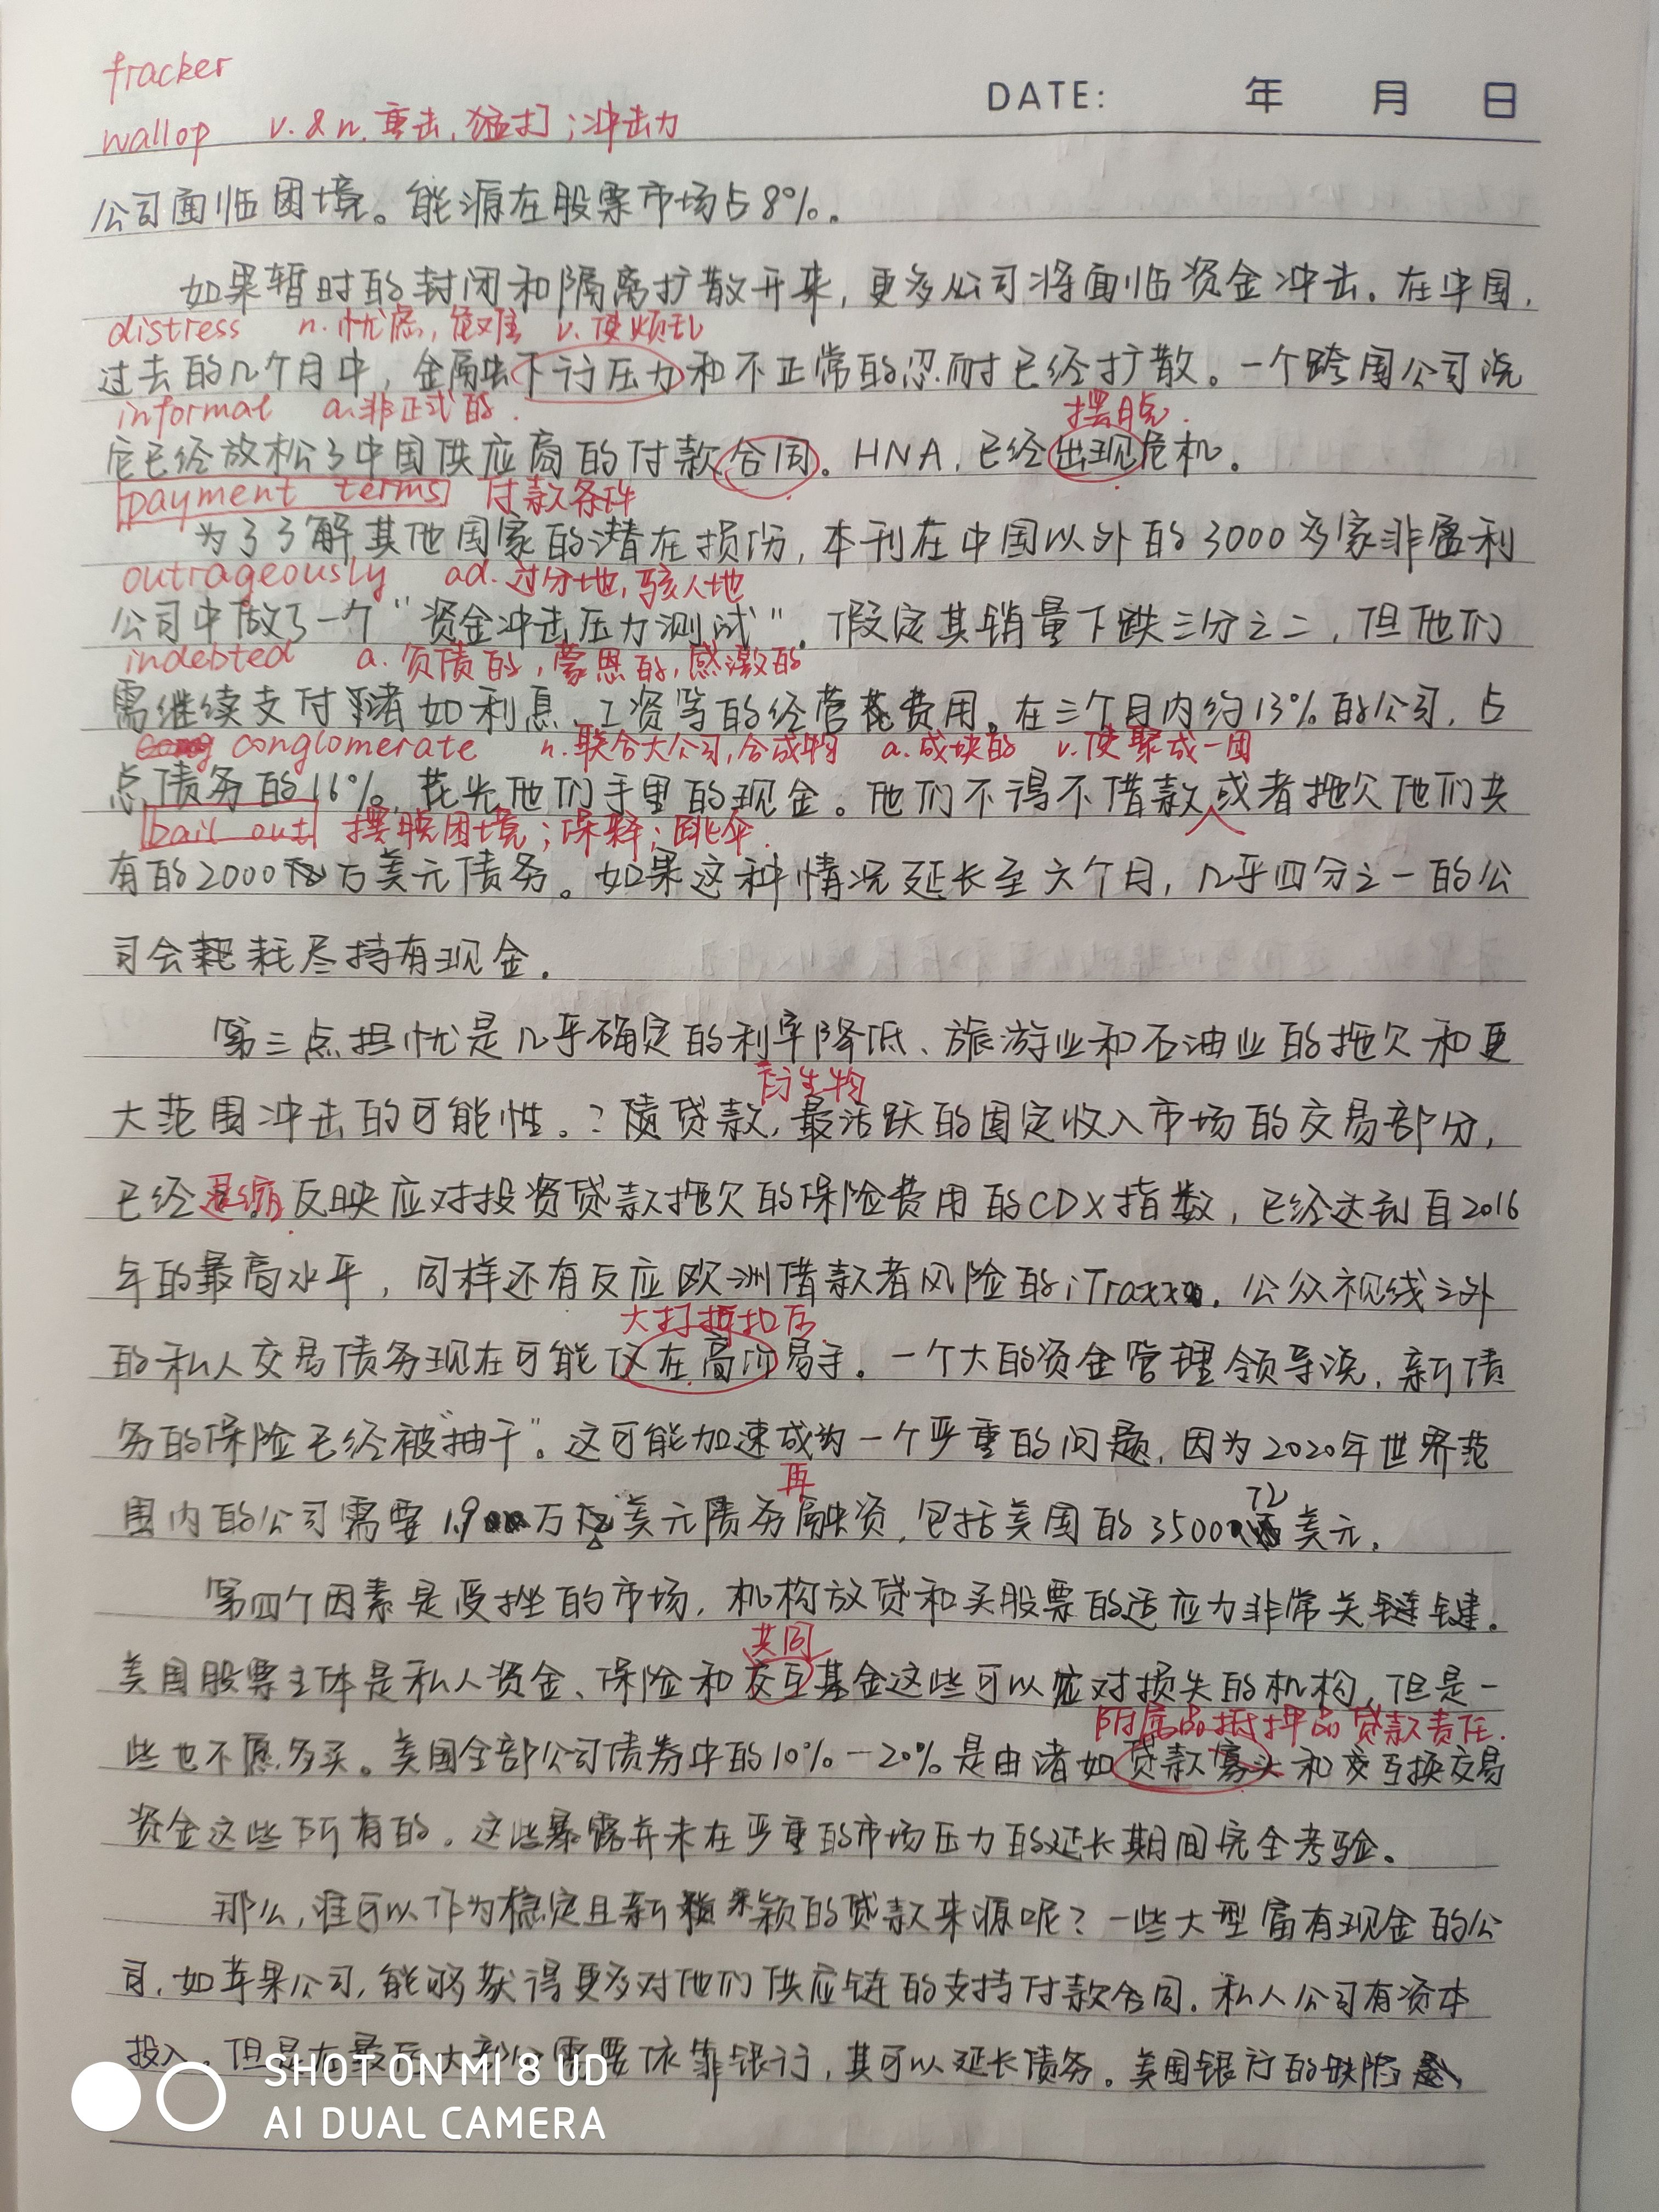 fracker
DATE: 年 月 日
wallop v. & n. 重击, 猛打; 冲击力
公司面临困境。能源在股票市场占8%.
如果暂时的封闭和隔离扩散开来, 更多公司将面临资金冲击. 在中国,
distress n. 忧虑, 危难 v. 使烦乱
过去的几个月中, 金融下行压力和不正常的忍耐已经扩散。一个跨国公司说
informal a. 非正式的. 摆脱.
它已经放松了中国供应商的付款合同。HNA, 已经出现危机。
payment terms 付款条件
为了了解其他国家的潜在损伤, 本刊在中国以外的3000多家非盈利
outrageously ad. 过分地, 骇人地
公司中做了一个"资金冲击压力测试". 假定其销量下跌三分之二, 但他们
indebted a. 负债的, 蒙恩的, 感激的
需继续支付诸如利息、工资等的经营费用。在三个月内约13%的公司, 占
conglomerate n. 联合大公司, 合成物 a. 成块的 v. 使聚成一团
点债务的16%, 花光他们手里的现金。他们不得不借款或者拖欠他们共
bail out 摆脱困境; 保释; 跳伞.
有的2000万美元债务。如果这种情况延长至六个月, 几乎四分之一的公
司会耗尽持有现金.
第三点担忧是几乎确定的利率降低、旅游业和石油业的拖欠和更
衍生物
大范围冲击的可能性。? 债贷款, 最活跃的固定收入市场的交易部分,
已经退缩. 反映应对投资贷款拖欠的保险费用的CDX指数, 已经达到自2016
年的最高水平, 同样还有反应欧洲借款者风险的iTraxx. 公众视线之外
大打折扣后
的私人交易债务现在可能仅在高价易手。一个大的资金管理领导说, 新债
务的保险已经被"抽干"。这可能加速成为一个严重的问题, 因为2020年世界范
再
围内的公司需要1.9万亿美元债务融资, 包括美国的3500亿美元.
第四个因素是受挫的市场. 机构放贷和买股票的适应力非常关键.
共同
美国股票主体是私人资金、保险和交互基金这些可以应对损失的机构, 但是一
附属品抵押品贷款责任.
些也不愿多买。美国全部公司债券中的10%—20%是由诸如贷款寡头和交互换交易
资金这些所有的。这些暴露并未在严重的市场压力的延长期间完全考验。
那么, 谁可以作为稳定且新颖的贷款来源呢? 一些大型富有现金的公
司, 如苹果公司, 能够获得更多对他们供应链的支持付款合同. 私人公司有资本
投入. 但是在最后大部分需要依靠银行, 其可以延长债务。美国银行的缺陷
SHOT ON MI 8 UD
AI DUAL CAMERA